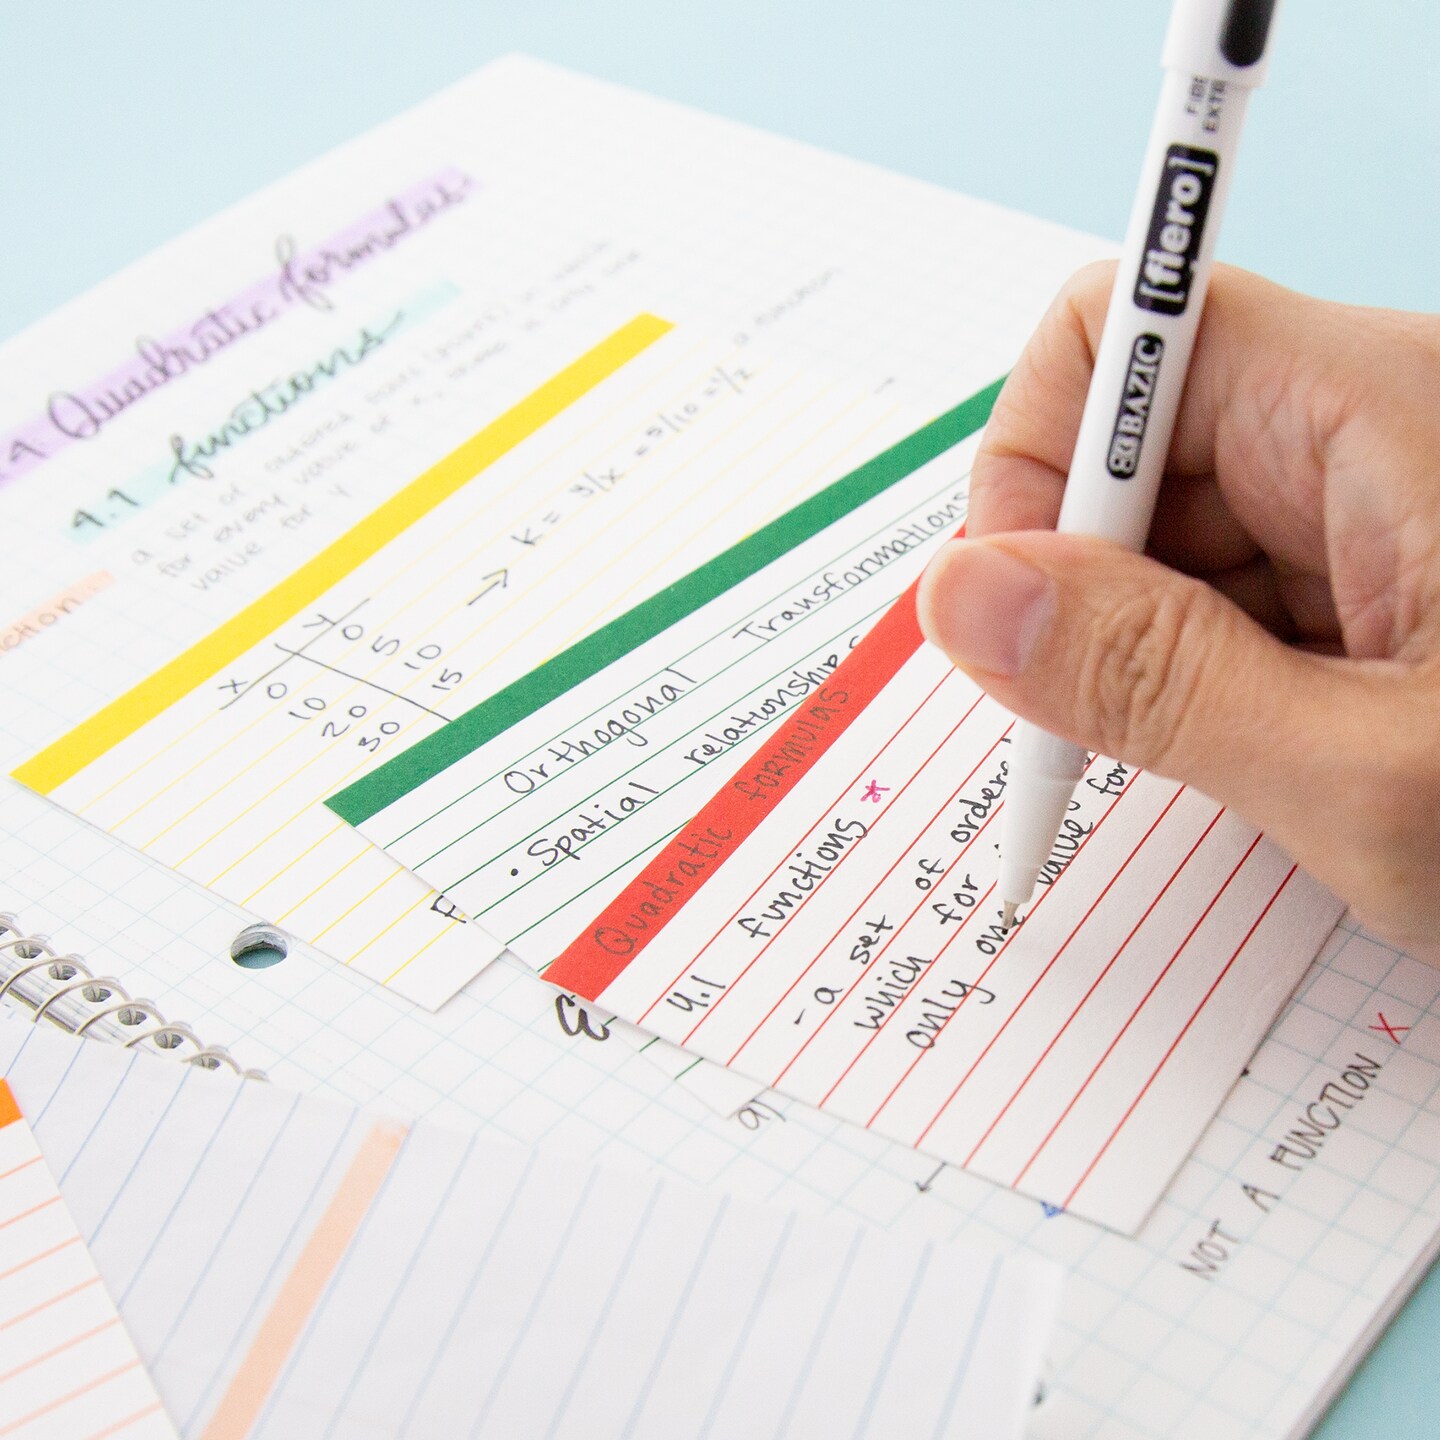 4. Quadratic formulas
4.1 functions
a set of ordered pairs (points) in which
for every value of x, there is only one
value for y
a function
X | Y
0 0
10 5
20 10
30 15
→ K = y/x = 5/10 = 1/2
Orthogonal Transformations
• Spatial relationships
Quadratic formulas
4.1 functions *
- a set of ordere
which for
only one value for
a)
NOT A FUNCTION X
[fiero]
BAZIC